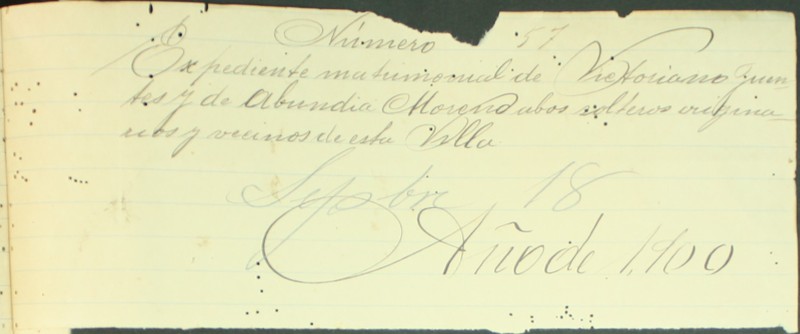 Número 57
Expediente matrimonial de Victoriano Fuen-
tes y de Abundia Moreno abos solteros origina-
rios y vecinos de esta Villa
Sepbre 18
Año de 1,900